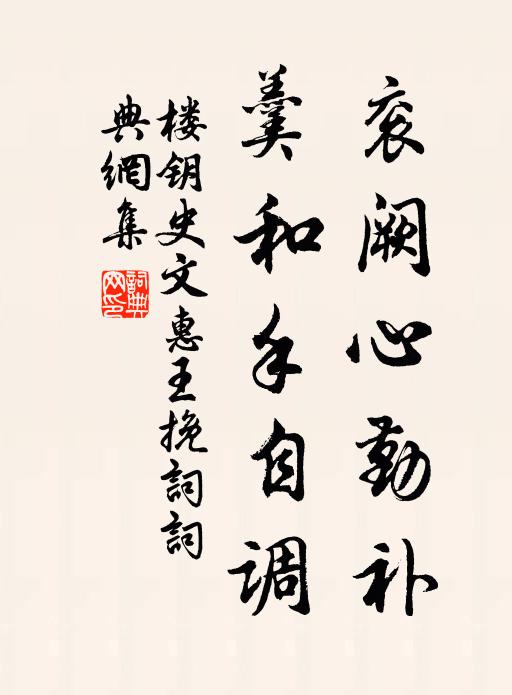 衮阙心勤补
羹和手自调
楼钥史文惠王挽词詞
典網集
詞典網印